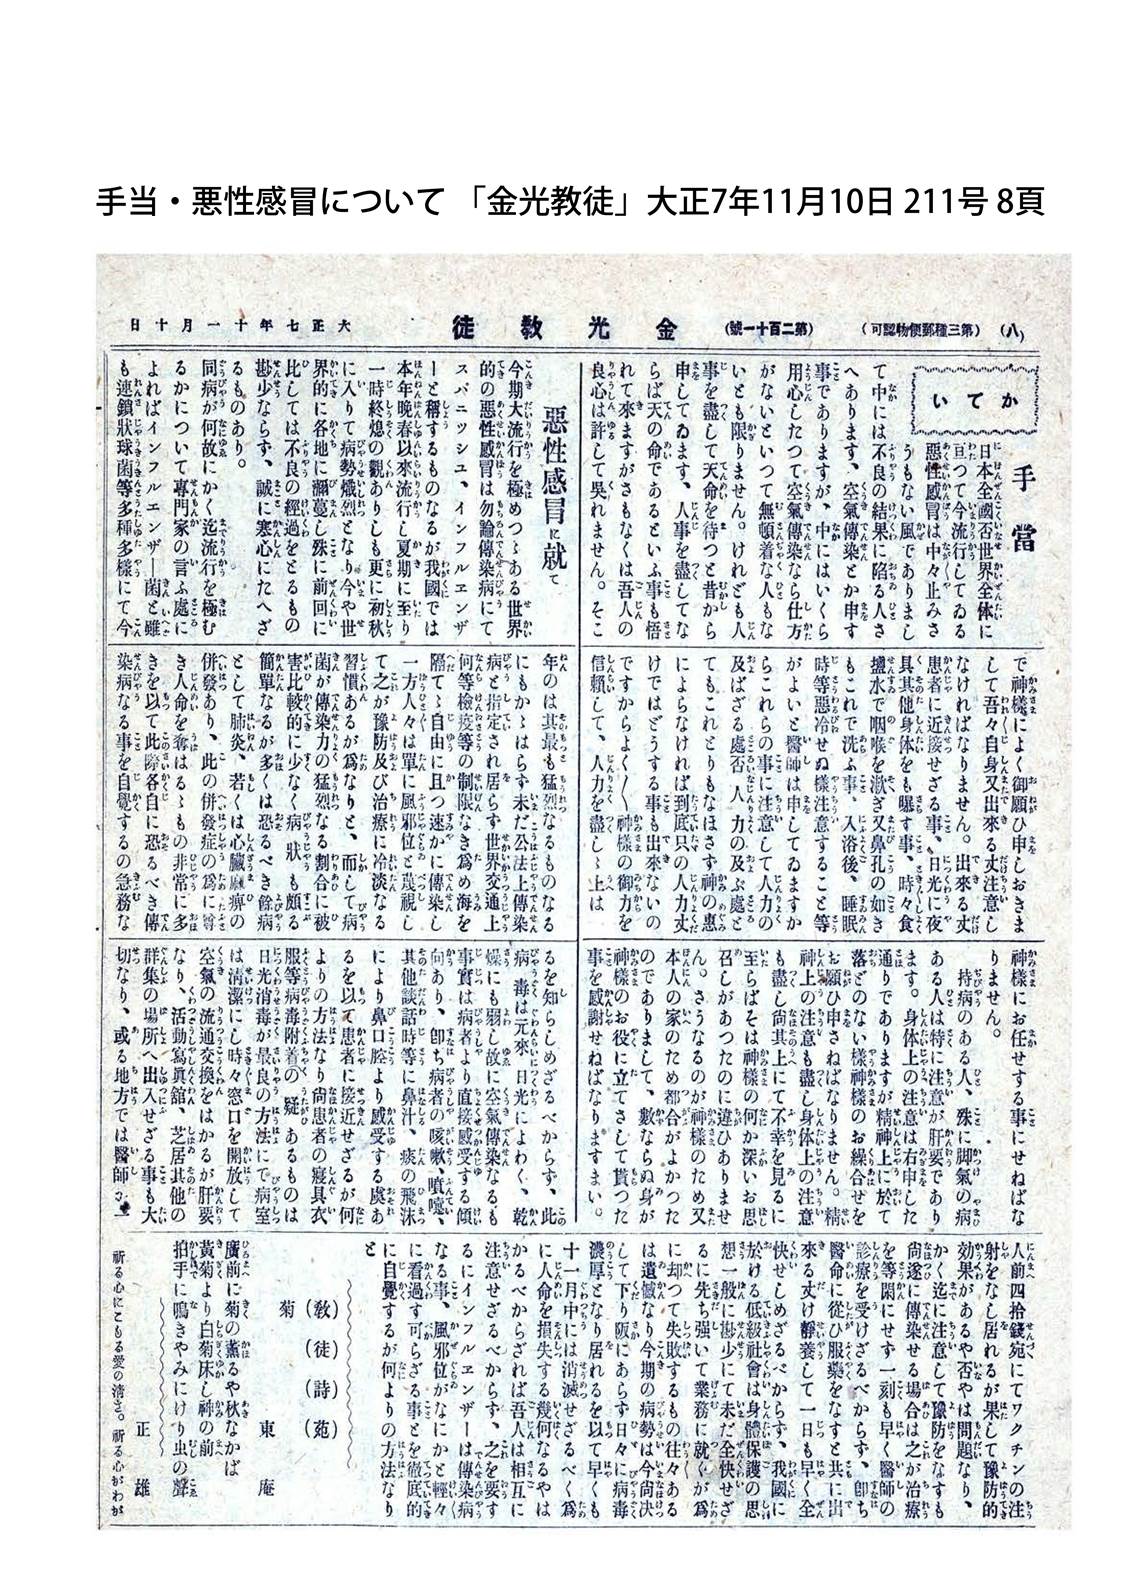 手当・悪性感冒について 「金光教徒」大正7年11月10日 211号 8頁
(八)
(第三種郵便物認可)
(第二百十一號)
金光教徒
大正七年十一月十日
かてい
手當
日本全國否世界全体に
亘つて今流行してゐる
惡性感冒は中々止みさ
うもない風でありまし
て中には不良の結果に陷る人さ
へあります、空氣傳染とか申す
事でありますが、中にはいくら
用心したつて空氣傳染なら仕方
がないといつて無頓着な人もな
いとも限りません。けれども人
事を盡して天命を待つと昔から
申してゐます、人事を盡してな
らば天の命であるといふ事も悟
れて來ますがさもなくは吾人の
良心は許して吳れません。そこ
で神樣によく御願ひ申しおきま
して吾々自身又出來る丈注意し
なければなりません。出來る丈
患者に近接せざる事、日光に夜
具其他身体をも曝す事、時々食
鹽水で咽喉を漱ぎ又鼻孔の如き
もこれで洗ふ事、入浴後、睡眠
時等惡冷せぬ樣注意すること等
がよいと醫師は申してゐますか
らこれらの事に注意して人力の
及ばざる處否人力の及ぶ處と
てもこれとりもなほさず神の惠
によらなければ到底只の人力丈
けではどうする事も出來ないの
ですからよく〱神樣の御力を
信賴して、人力を盡しゝ上は
神樣にお任せする事にせねばな
りません。
持病のある人、殊に脚氣の病
ある人は特に注意が肝要であり
ます。身体上の注意は右申した
通りでありますが精神上に於て
落どのない樣神樣のお繰合せを
お願ひ申さねばなりません。精
神上の注意も盡し身体上の注意
も盡し尙其上にて不幸を見るに
至らばそは神樣の何か深いお思
召しがあつたのに違ひありませ
ん。さうなるのが神樣のため又
本人の家のため都合がよかつた
のでありまして、數ならぬ身が
神樣のお役に立てさして貰つた
事を感謝せねばなりますまい。
惡性感冒に就て
今期大流行を極めつゝある世界
的の惡性感冒は勿論傳染病にて
スパニッシユ、インフルエンザ
ーと稱するものなるが我國では
本年晚春以來流行し夏期に至り
一時終熄の觀ありしも更に初秋
に入りて病勢熾烈となり今や世
界的に各地に瀰蔓し殊に前回に
比しては不良の經過をとるもの
尠少ならず、誠に寒心にたへざ
るものあり。
同病が何故にかく迄流行を極む
るかについて專門家の言ふ處に
よればインフルエンザー菌と雖
も連鎖狀球菌等多種多樣にて今
年のは其最も猛烈なるものなる
にもかゝはらず未だ公法上傳染
病と指定され居らず世界交通上
何等檢疫等の制限なき爲め海を
隔てゝ自由に且つ速かに傳染し
一方人々は單に風邪位と蔑視し
て之が豫防及び治療に冷淡なる
習慣あるが爲なりと、而して病
菌が傳染力の猛烈なる割合に被
害比較的に少なく病狀も頗る
簡單なるが多くは恐るべき餘病
として肺炎、若くは心臟痲痺の
併發あり、此の併發症の爲に尊
き人命を奪はるゝもの非常に多
きを以て此際各自に恐るべき傳
染病なる事を自覺するの急務な
るを知らしめざるべからず、此
病毒は元來、日光によわく、乾
燥にも弱し故に空氣傳染なるも
事實は病者より直接感受する傾
向あり、卽ち病者の咳嗽、噴嚏、
其他談話時等に鼻汁、痰の飛沫
により鼻口腔より感受する虞あ
るを以て患者に接近せざるが何
よりの方法なり尙患者の寢具衣
服等病毒附着の疑あるものは
日光消毒が最良の方法にで病室
は淸潔にし時々窓口を開放して
空氣の流通交換をはかるが肝要
なり、活動寫眞館、芝居其他の
群集の場所へ出入せざる事も大
切なり、或る地方では醫師が一
人前四拾錢宛にてワクチンの注
射をなし居れるが果して豫防的
効果があるや否やは問題なり、
かく迄に注意して豫防をなすも
尙遂に傳染せる場合は之が治療
を等閑にせず一刻も早く醫師の
診療を受けざるべからず、卽ち
醫命に從ひ服藥をなすと共に出
來る丈け靜養して一日も早く全
快せしめざるべからず、我國に
於ける低級社會は身體保護の思
想一般に尠少にて未だ全快せざ
るに先ち强いて業務に就くが爲
に却つて失敗するもの往々ある
は遺憾なり今期の病勢は今尙決
して下り阪にあらず日々に病毒
濃厚となり居れるを以て早くも
十一月中には消滅せざるべく爲
に人命を損失する幾何なるやは
かるべからざれば吾人は相互に
注意せざるべからず、之を要す
るにインフルエンザーは傳染病
なる事、風邪位がなにかと輕々
に看過す可らざる事とを徹底的
に自覺するが何よりの方法なり
と
(敎)(徒)(詩)(苑)
菊
東庵
廣前に菊の薰るや秋なかば
黃菊より白菊床し神の前
拍手に鳴きやみにけり虫の聲
正雄
祈る心にこもる愛の淸さ。祈る心がわが